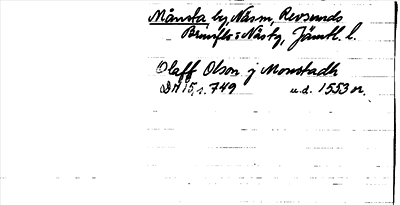 Månsta, by, Näsm, Revsunds
Brunflo s Nästg, Jämtl. l.
Olaff Olson j Monstadh
DN 15, s. 749 u.d. 1553 or.